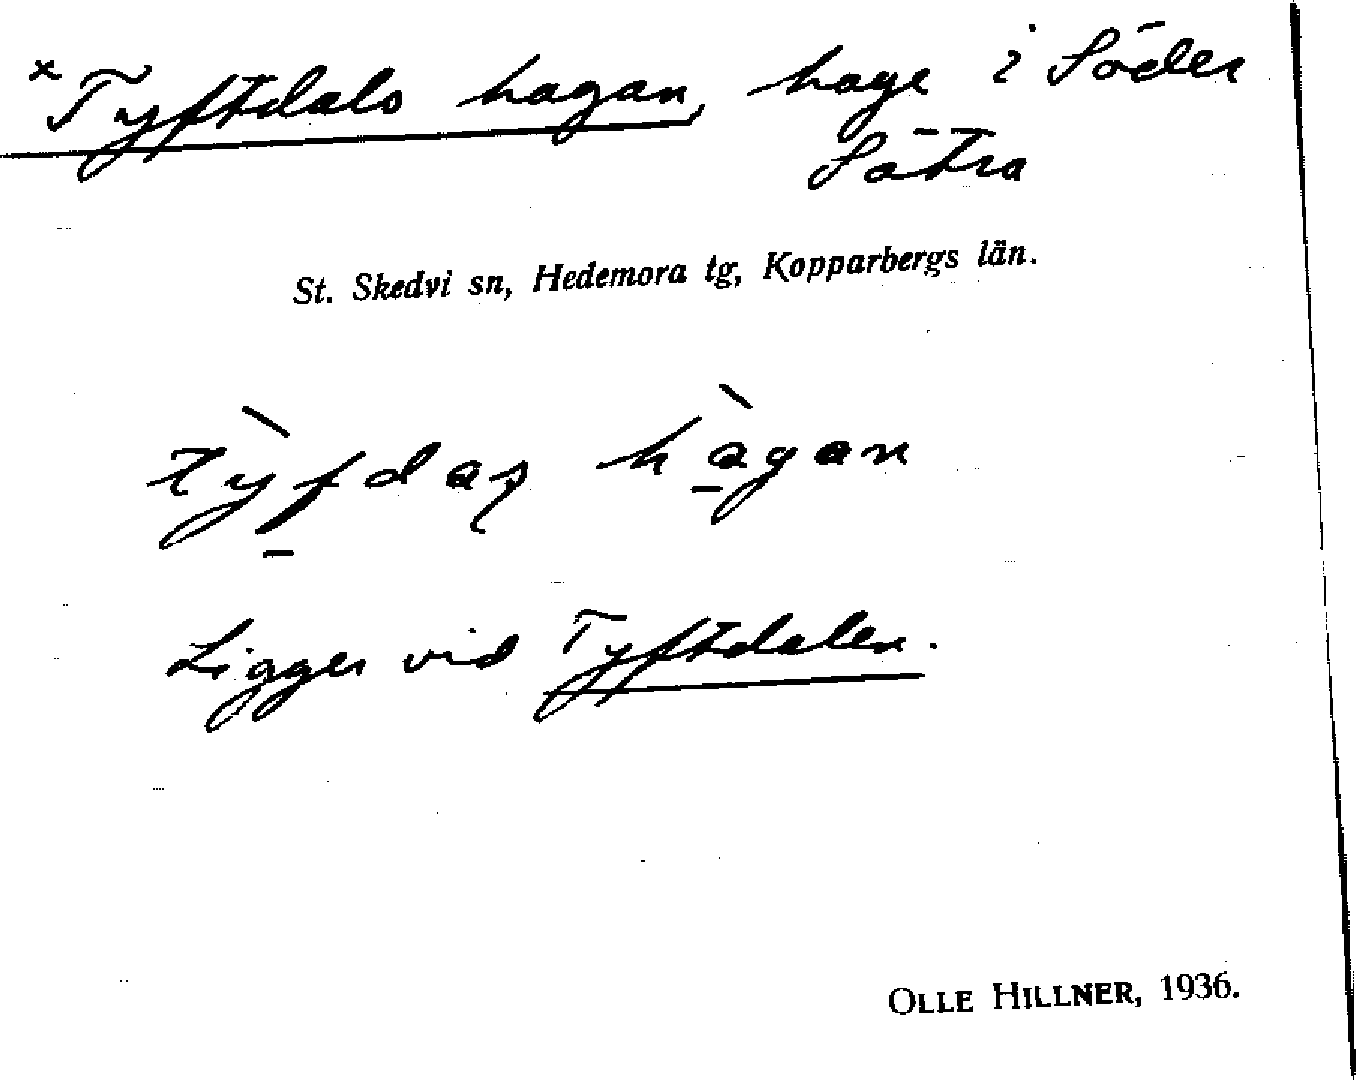 × Tyftdals hagan, hage i Söder
Sätra
St. Skedvi sn, Hedemora tg, Kopparbergs län.
tỳfdaș hàgan
Ligger vid Tyftdalen.
OLLE HILLNER, 1936.